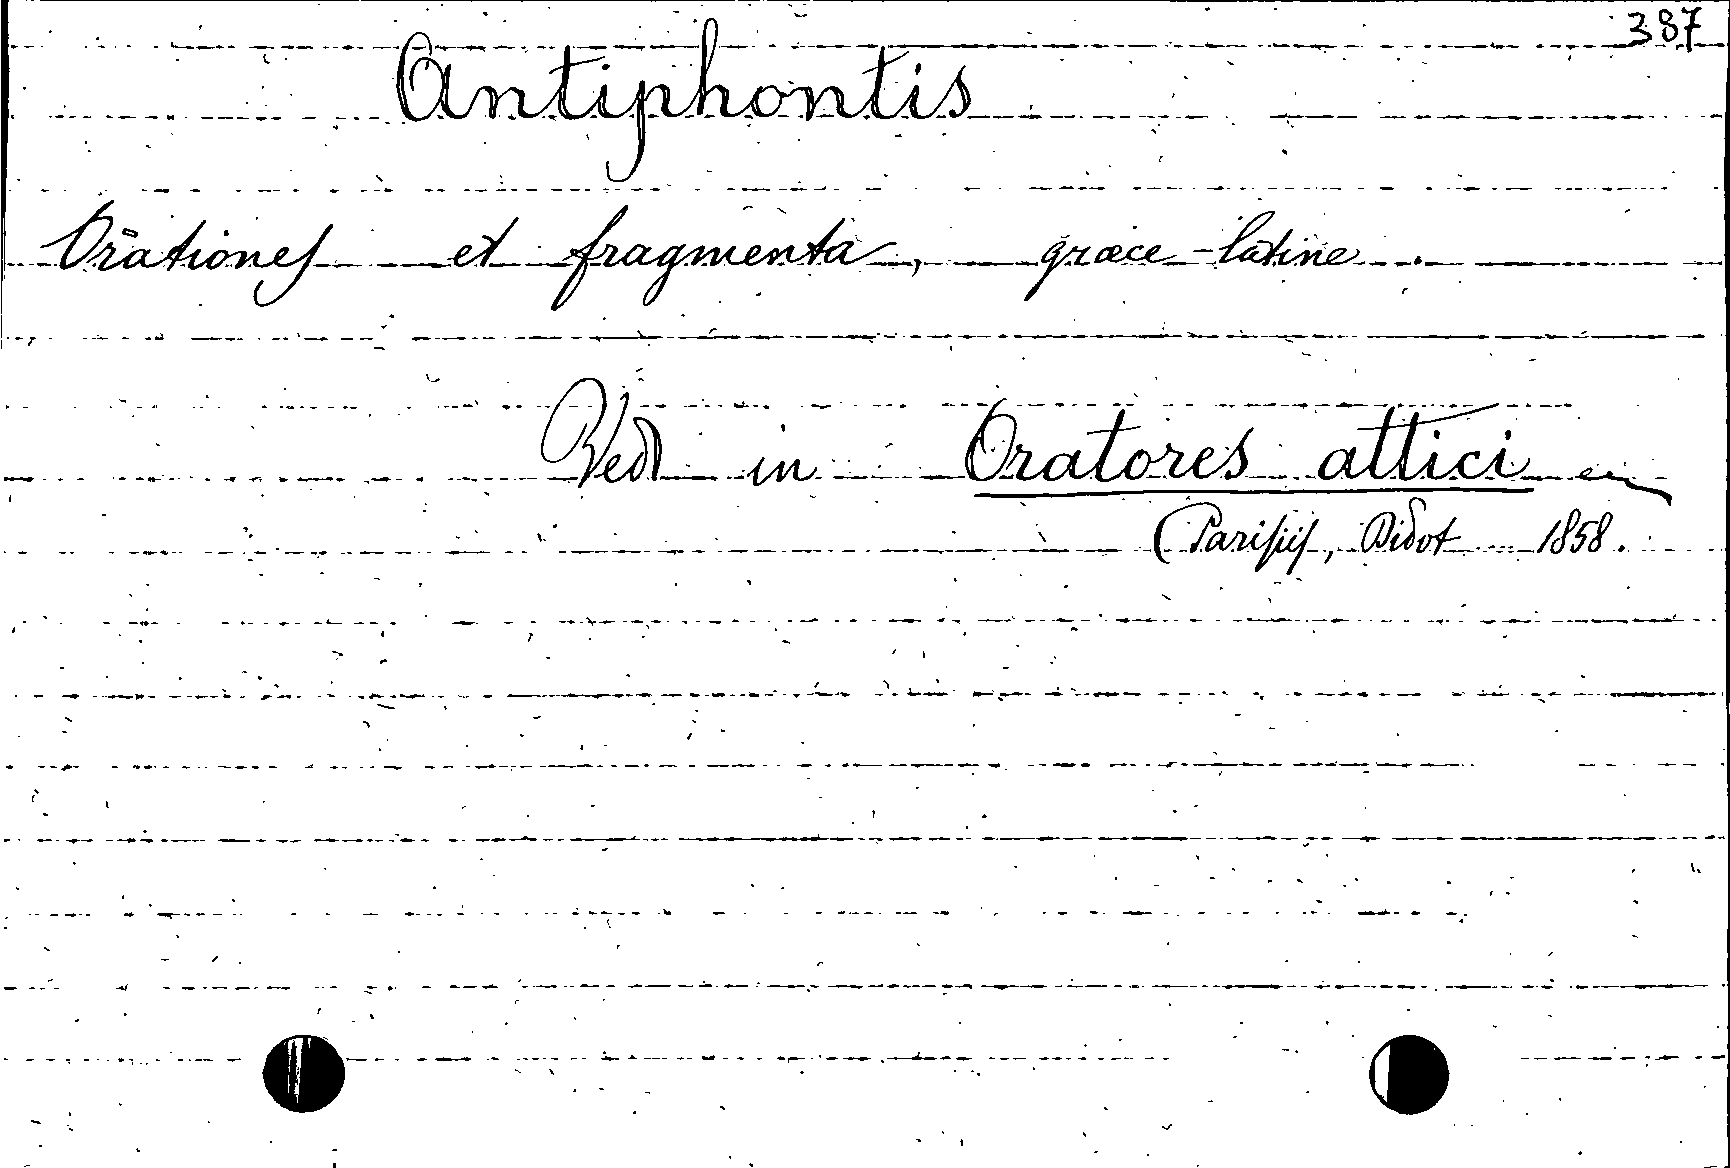 387
Antiphontis
Orationes et fragmenta, græce-latine.
Vedi in Oratores attici
(Parisiis, Didot 1858.